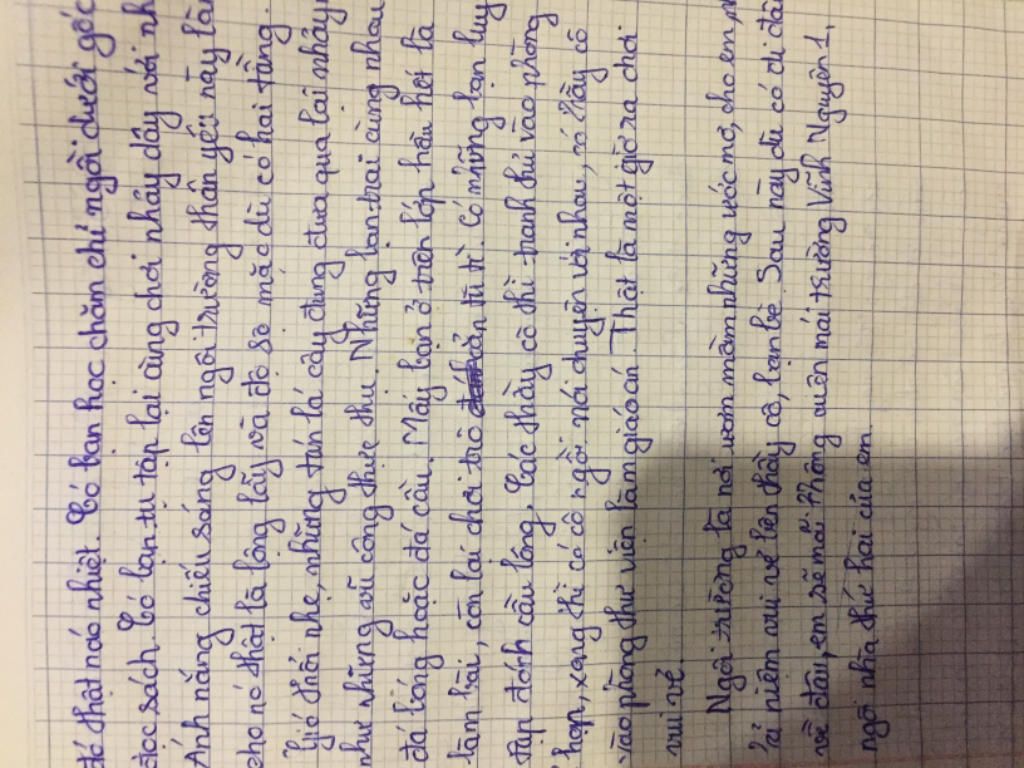 đó thật náo nhiệt. Có bạn học chăm chỉ ngồi dưới gốc
đọc sách. Có bạn tụ tập lại cùng chơi nhảy dây với nh
Ánh nắng chiếu sáng lên ngôi trường thân yêu này làm
cho nó thật là lộng lẫy và đồ sộ mặc dù có hai tầng.
Gió thổi nhẹ, những tán lá cây đung đưa qua lại nhảy
như những vũ công thực thụ. Những bạn trai cùng nhau
đá bóng hoặc đá cầu. Mấy bạn ở trên lớp hầu hết là
làm bài, còn lại chơi trò oẳn tù tì. Có những bạn luy
tập đánh cầu lông. Các thầy cô thì tranh thủ vào phòng
họp, xong thì có cô ngồi nói chuyện với nhau, có thầy cô
vào phòng thư viện làm giáo án. Thật là một giờ ra chơi
vui vẻ.
Ngôi trường là nơi ươm mầm những ước mơ, cho em n
kỉ niệm vui vẻ bên thầy cô, bạn bè. Sau này dù có đi đâu
về đâu, em sẽ mãi không quên mái trường Vĩnh Nguyên 1,
ngôi nhà thứ hai của em.